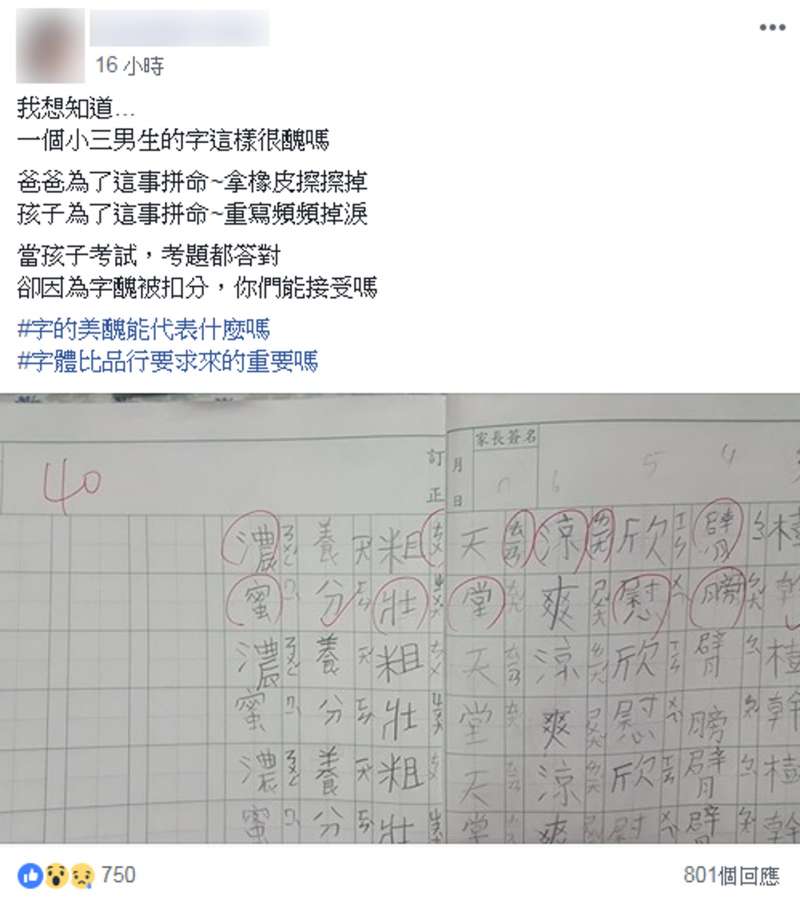 16 小時
我想知道...
一個小三男生的字這樣很醜嗎
爸爸為了這事拼命~拿橡皮擦擦掉
孩子為了這事拼命~重寫頻頻掉淚
當孩子考試，考題都答對
卻因為字醜被扣分，你們能接受嗎
#字的美醜能代表什麼嗎
#字體比品行要求來的重要嗎
家長簽名
月
日
5
4
臂膀
欣慰
涼爽
天堂
訂正
40
粗壯
養分
濃蜜
臂膀
欣慰
涼爽
天堂
粗壯
養分
濃蜜
臂
欣慰
涼爽
天堂
粗壯
養分
濃蜜
750
801個回應